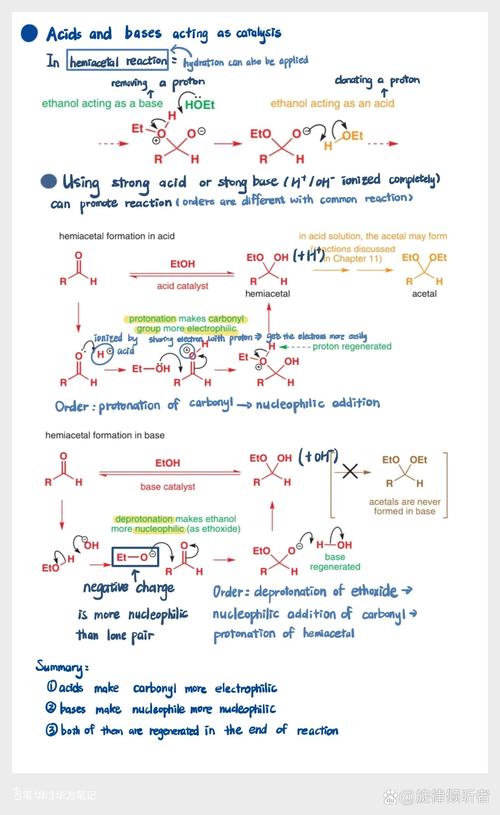 Acids and bases acting as catalysis
In hemiacetal reaction = hydration can also be applied
removing a proton
donating a proton
ethanol acting as a base
HÖEt
ethanol acting as an acid
H
Et O O ⊖
⊕
R H
EtO O ⊖
R H
H OEt
Using strong acid or stong base (H⁺/OH⁻ ionized completely)
can promote reaction (orders are different with common reaction)
hemiacetal formation in acid
in acid solution, the acetal may form
(reactions discussed
in Chapter 11)
O
R H
EtOH
acid catalyst
EtO OH (+H⁺)
R H
hemiacetal
EtO OEt
R H
acetal
protonation makes carbonyl
group more electrophilic
ionized by
acid
sharing electron with proton ⇒ gets the electrons more easily
proton regenerated
O
R H
H ⊕
Et–ÖH
H
O ⊕
R H
H
Et O OH
⊕
R H
Order : protonation of carbonyl → nucleophilic addition
hemiacetal formation in base
O
R H
EtOH
base catalyst
EtO OH (+OH⁻)
R H
EtO OEt
R H
acetals are never
formed in base
deprotonation makes ethanol
more nucleophilic (as ethoxide)
⊖
OH
H
EtO
Et–O ⊖
O
R H
EtO O ⊖
R H
H–OH
base
regenerated
negative charge
is more nucleophilic
than lone pair
Order : deprotonation of ethoxide →
nucleophilic addition of carbonyl →
protonation of hemiacetal
Summary :
① acids make carbonyl more electrophilic
② bases make nucleophile more nucleophilic
③ both of them are regenerated in the end of reaction
华为笔记
Bai百度 @旋律倾听者